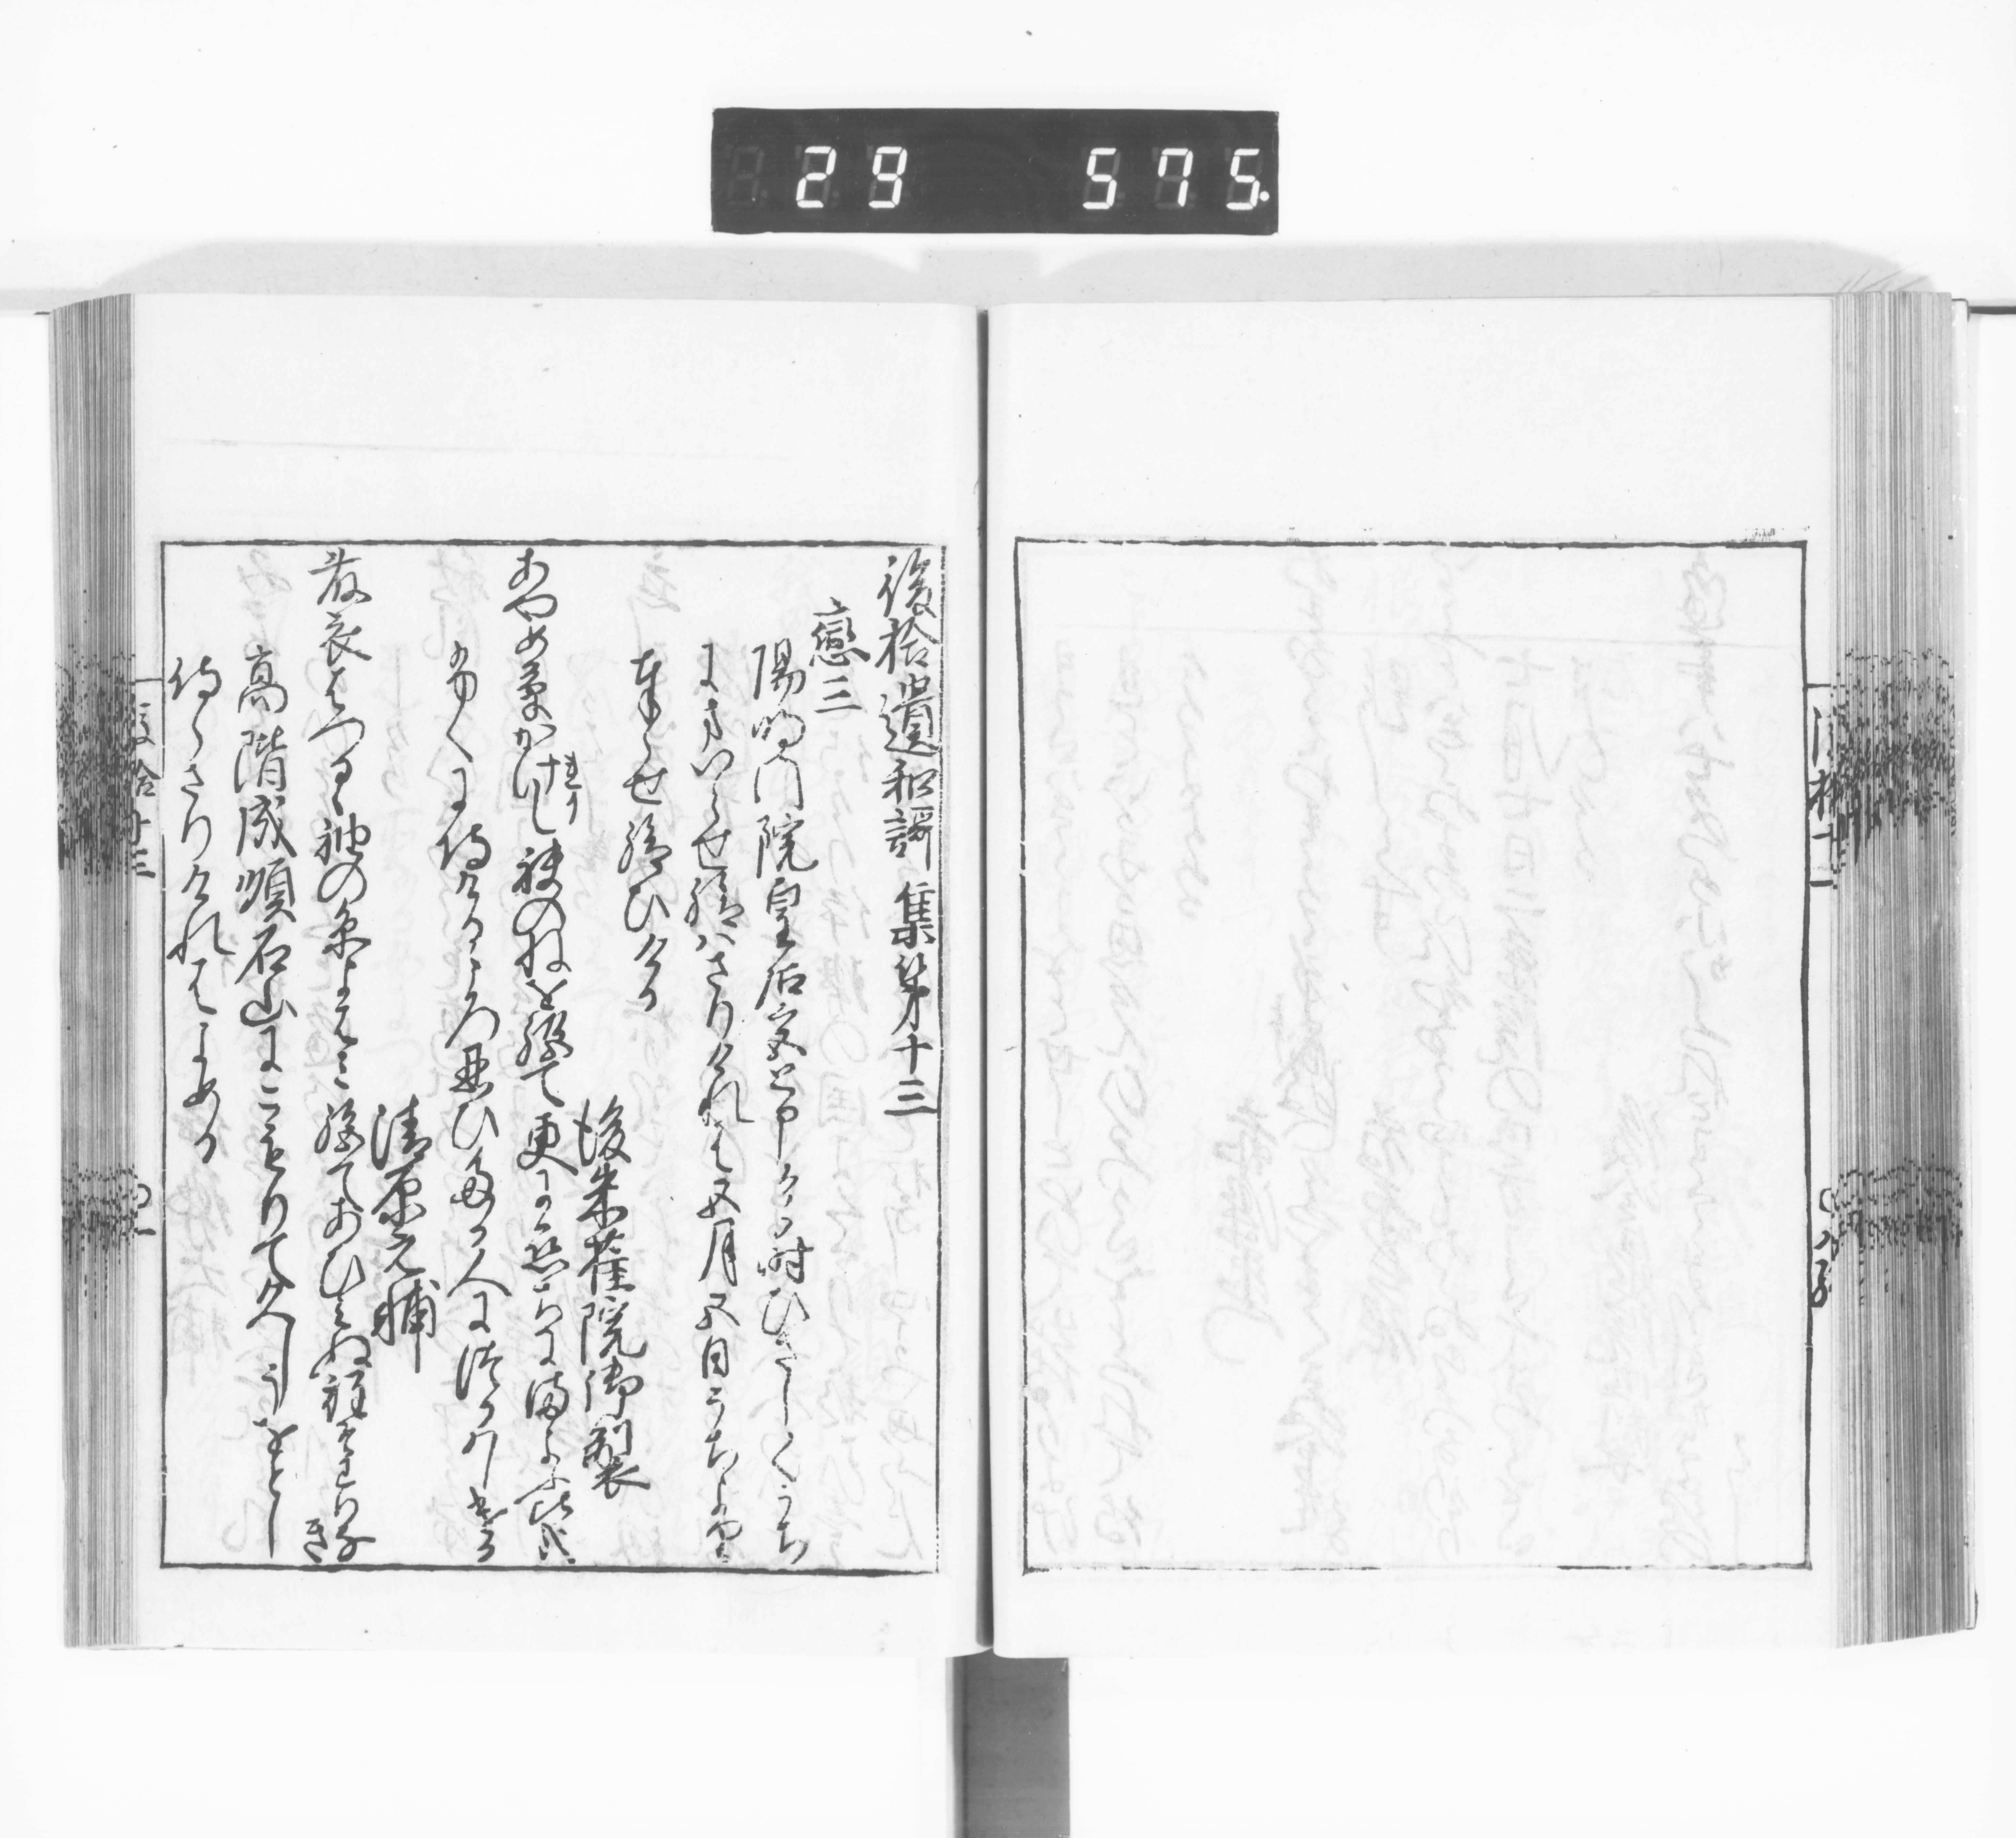 29 575.
後拾遺和謌集第十三
戀三
陽明門院皇后宮と申ける時ひさしくうち
にまいらせ給はさりけれは五月五日うちより
奉らせ給ひける
後朱雀院御製
あやめ草かけし袂のねを絶て更に恋ちにまよふ比哉
まかり
侍けるころ忍ひたる人につかはしける
清原元輔
藤衣はつるゝ袖の糸よはみ絶てあひみぬ程そわりなき
高階成順石山にこもりて久しうをとし
侍らさりけれはよめる